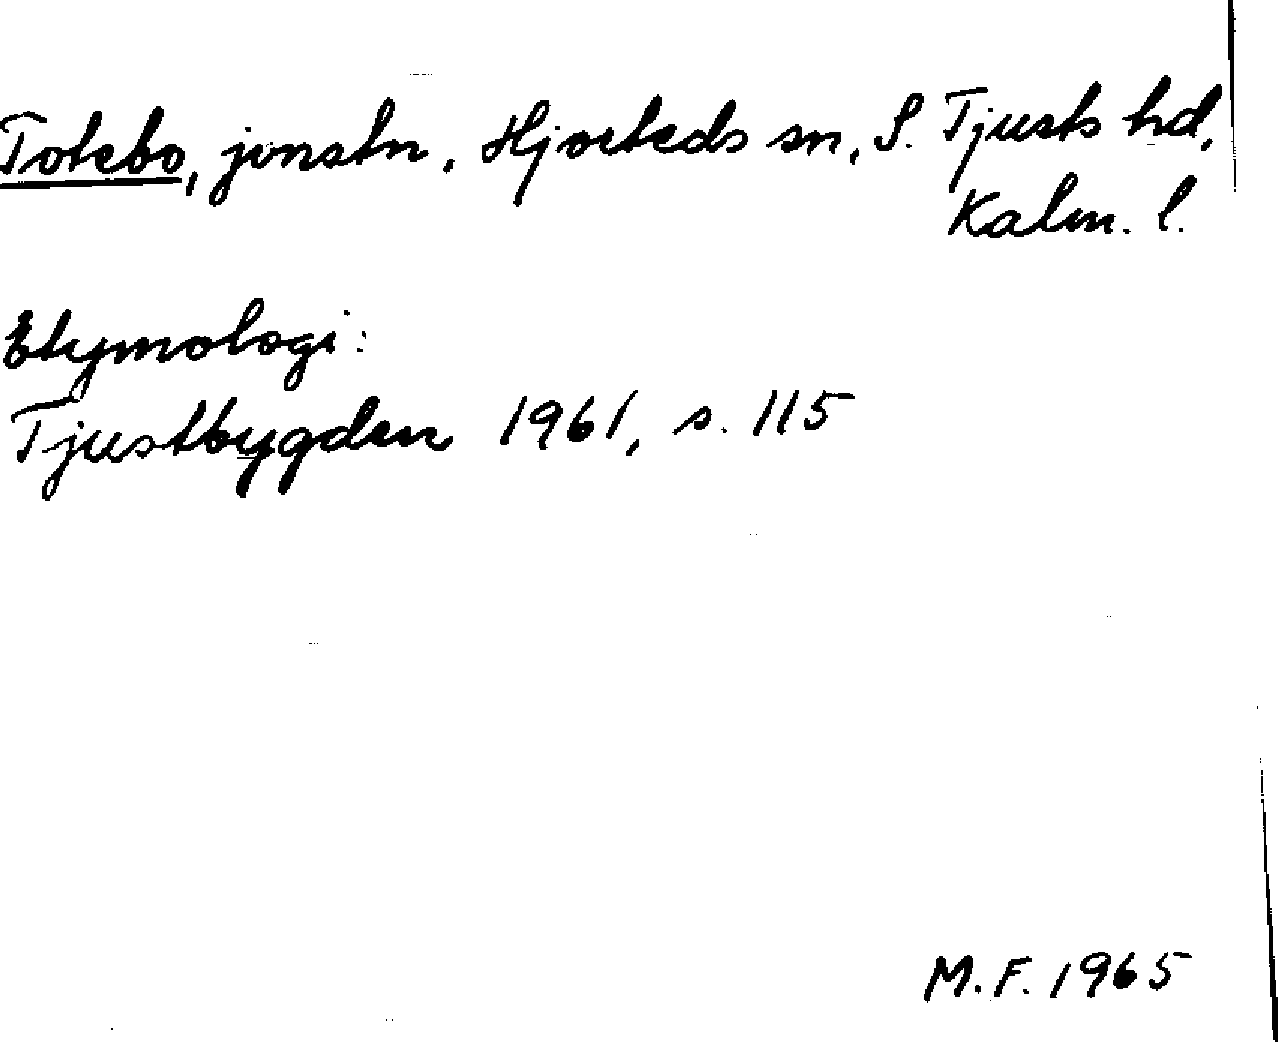 Totebo, jvnstn. Hjorteds sn, S. Tjusts hd,
Kalm. l.
Etymologi:
Tjustbygden 1961, s. 115
M.F. 1965